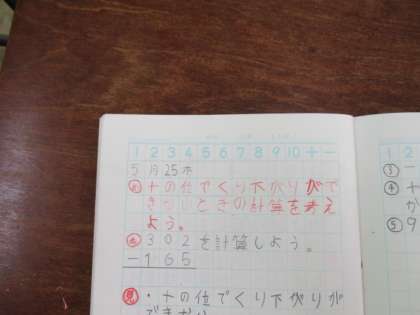 1 2 3 4 5 6 7 8 9 10 + －
5月25木
め 十の位でくり下がりがで
きないときの計算を考え
よう。
302を計算しよう。
－165
見・十の位でくり下がりが
できない
1 2
③ －
④ 十
か
⑤ 9